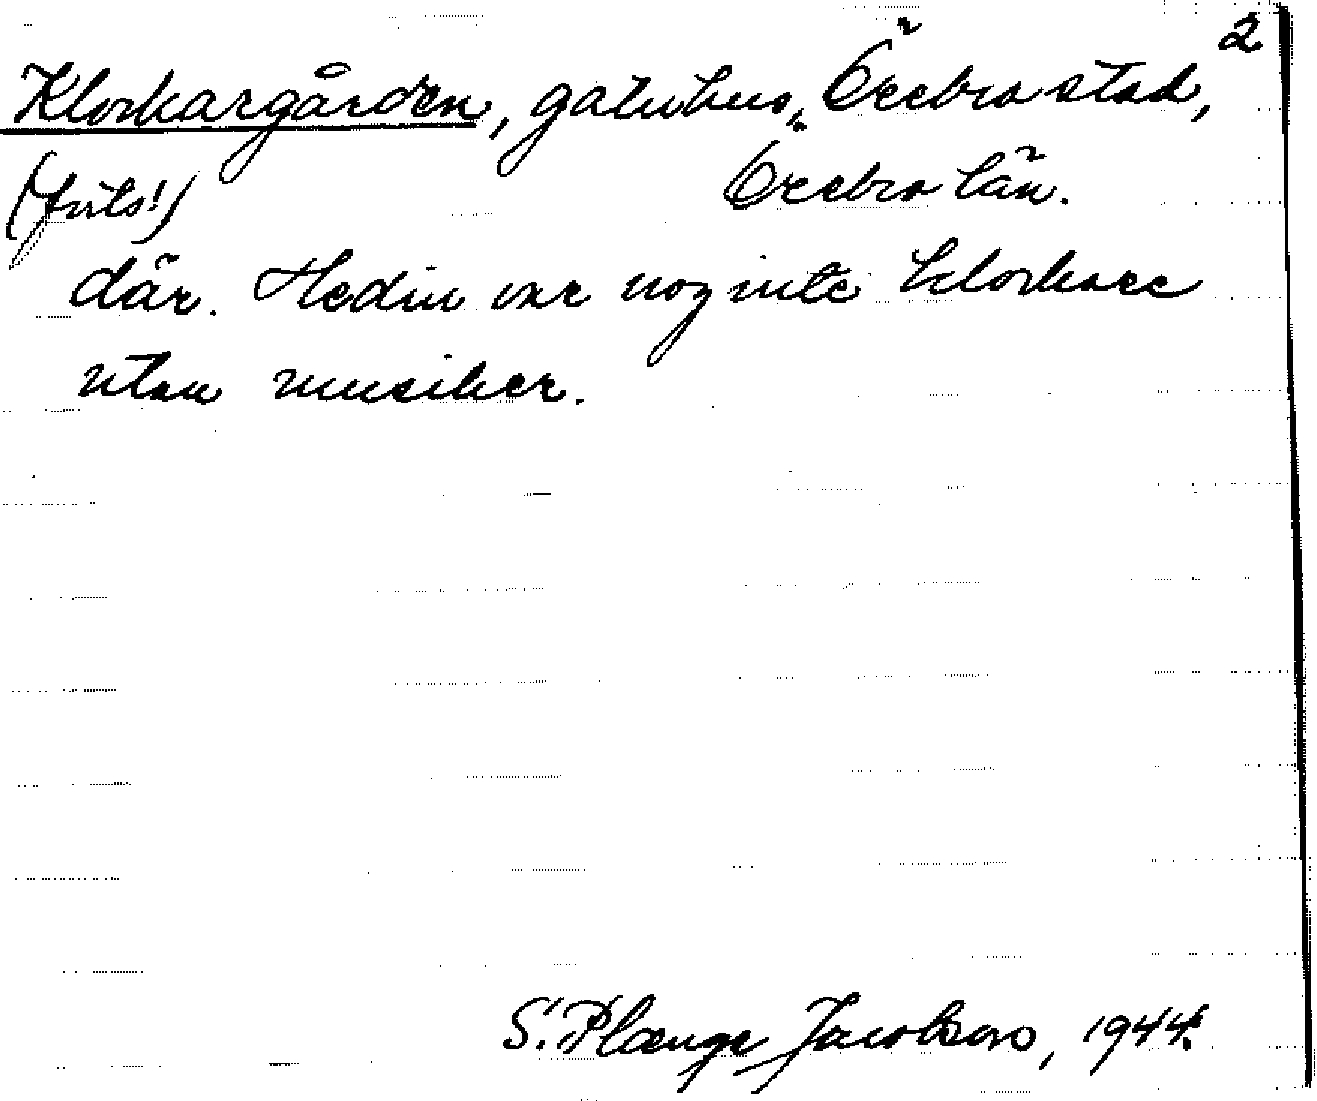 2
Klockargården, gatuhus, Örebro stad,
(forts!) Örebro län.
där. Hedin var nog inte klockare
utan musiker.
S. Plænge Jacobson, 1944.